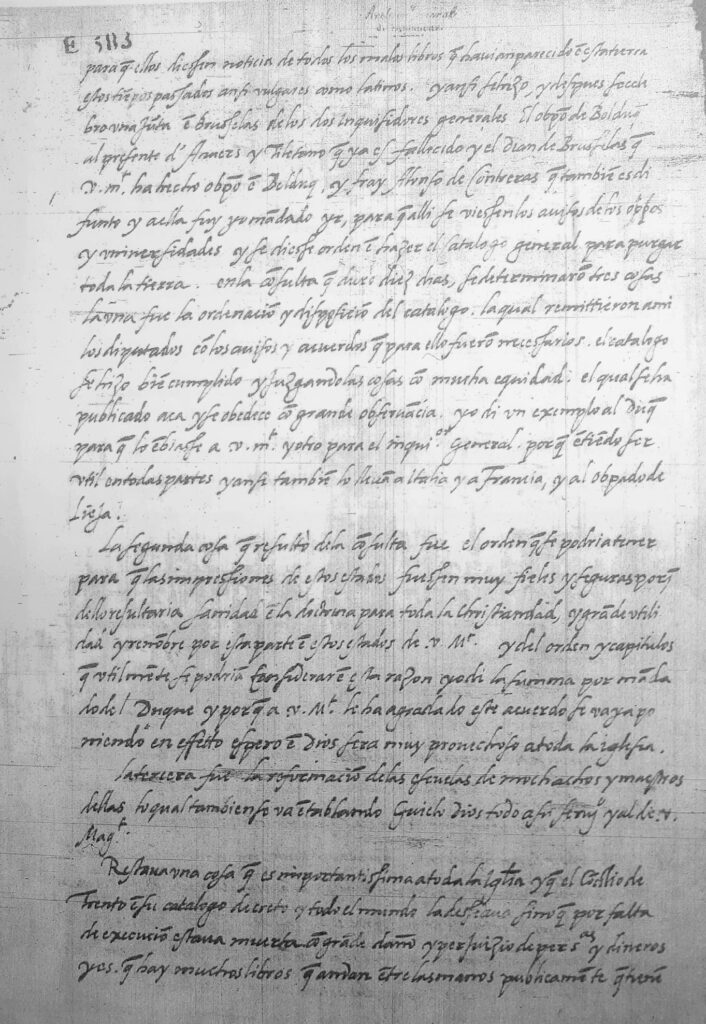 E 583
para q̃ ellos diessen noticia de todos los malos libros q̃ havian parecido ẽ esta tierra
estos tiẽpos passados ansi vulgares como latinos. yansi se hizo, y despues se cele
bro vna jũta ẽ brusselas de los dos inquisidores generales El obpõ de Bolduq
al presente d' Anvers y Tiletano q̃ ya es fallecido y el Dean de Brusselas q̃
v. m.ᵗ ha hecho obpõ ẽ Bolduq, y fray Alonso de Contreras q̃ tambiẽ es di
funto y a ella fuy yo mãdado yr, para q̃ alli se viessen los auisos de los obpõs
y vniuersidades y se diesse orden ẽ hazer el catalogo general para purgar
toda la tierra. en la cõsulta q̃ duro diez dias, se determinarõ tres cosas
La vna fue la ordenaciõ y disposiciõ del catalogo. la qual remittieron a mi
los diputados cõ los auisos y acuerdos q̃ para ello fuerõ necessarios. el catalogo
se hizo biẽ cumplido y juzgando las cosas cõ mucha equidad. el qual se ha
publicado aca y se obedece cõ grande obseruãcia. yo di vn exemplo al Duq̃
para q̃ lo ẽbiasse a v. m.ᵗ y otro para el inqui.ᵒʳ General. porq̃ ẽtiẽdo ser
vtil en todas partes yansi tambiẽ lo lleuã a Italia y a Francia, y al obpado de
Lieja.
La segunda cosa q̃ resultò de la cõsulta fue el orden q̃ se podria tener
para q̃ las impressiones de estos estados fuessen muy fieles y seguras porq̃
dello resultaria sanidad ẽ la doctrina para toda la Christiandad, y grãde vtili
dad y renõbre por esta parte ẽ estos estados de v. M.ᵗ y del orden y capitulos
q̃ vtilmẽte se podriã considerar ẽ esta razon yo di la summa por mãda
do del Duque y porq̃ a v. M.ᵗ le ha agradado este acuerdo se vaya po
niendo en effetto espero ẽ Dios sera muy prouechoso a toda la iglesia.
la tercera fue la reformaciõ de las escuelas de mochachos y maestros
dellas lo qual tambien se va ẽtablando Guielo Dios todo a su serui.ᵒ y al de v.
Mag.ᵗ
Restaua vna cosa q̃ es importantissima a toda la Iglᵃ y q̃ el Cõsilio de
Trento ẽ su catalogo decreto y todo el mundo la desseaua sino q̃ por falta
de execuciõ estaua muerta cõ grãde daño y perjuizio de pers.ᵃˢ y dineros
y es. q̃ hay muchos libros q̃ andan ẽtre las manos publicamẽte q̃ tienẽ